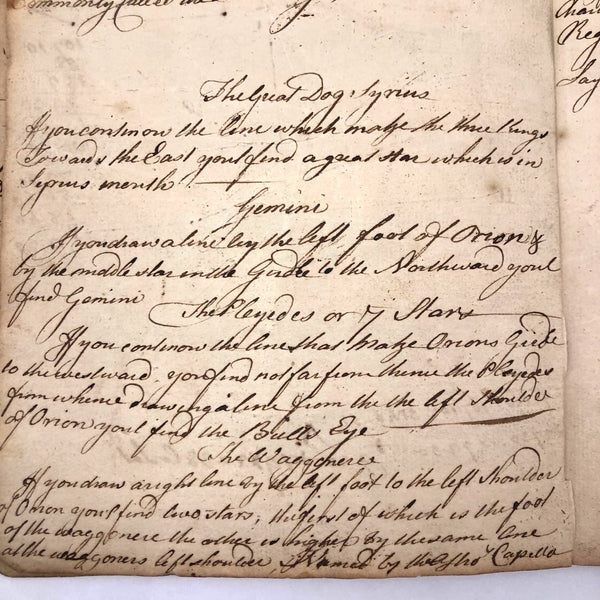 The Great Dog Syrius
If you continow the line which make the three Kings
Towards the East you'l find a great star which is in
Syrius mouth
Gemini
If you draw a line by the left foot of Orion &
by the middle star in the Girdle to the Northward youl
find Gemini
The Pleyedes or 7 Stars
If you continow the line that make Orions Girdle
to the westward you find not far from thence the Pleyedes
from whence drawing a line from the the left Shoulder
of Orion youl find the Bulls Eye
The Waggonere
If you draw a right line by the left foot to the left Shoulder
of Orion you'l find two stars, the first of which is the foot
of the waggonere the other is higher by the same line
at the waggoners left shoulder, Named by the Capella
Reg
Say